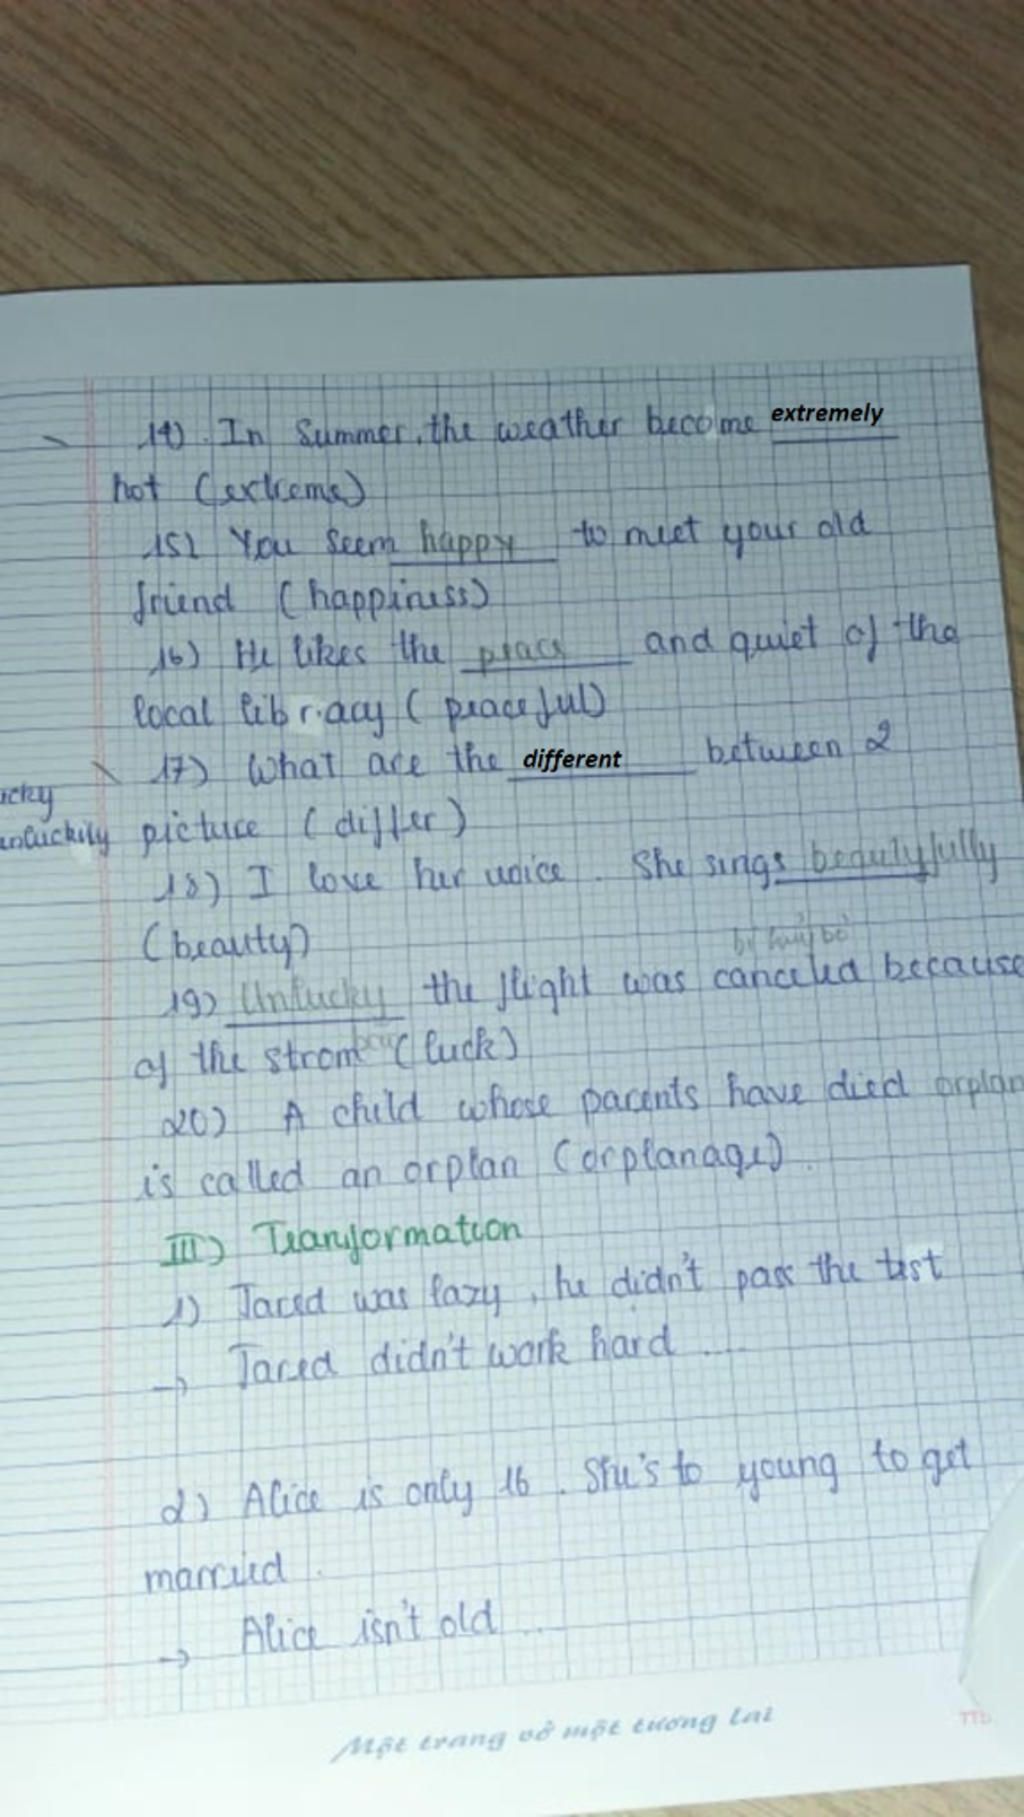 14) In Summer, the weather become extremely
hot (extreme)
15) You seem happy to meet your old
friend (happiness)
16) He likes the peace and quiet of the
local library (peaceful)
17) What are the different between 2
ucky
unluckily picture (differ)
18) I love her voice. She sings beautyfully
(beauty)
bị huỷ bỏ
19) Unlucky the flight was canceled because
of the strom (luck)
20) A child whose parents have died orplan
is called an orplan (orplanage).
III) Tranformation
1) Jared was lazy, he didn't pass the test
→ Jared didn't work hard ...
2) Alice is only 16. She's to young to get
married.
→ Alice isn't old ...
Một trang vở một tương lai
TTb